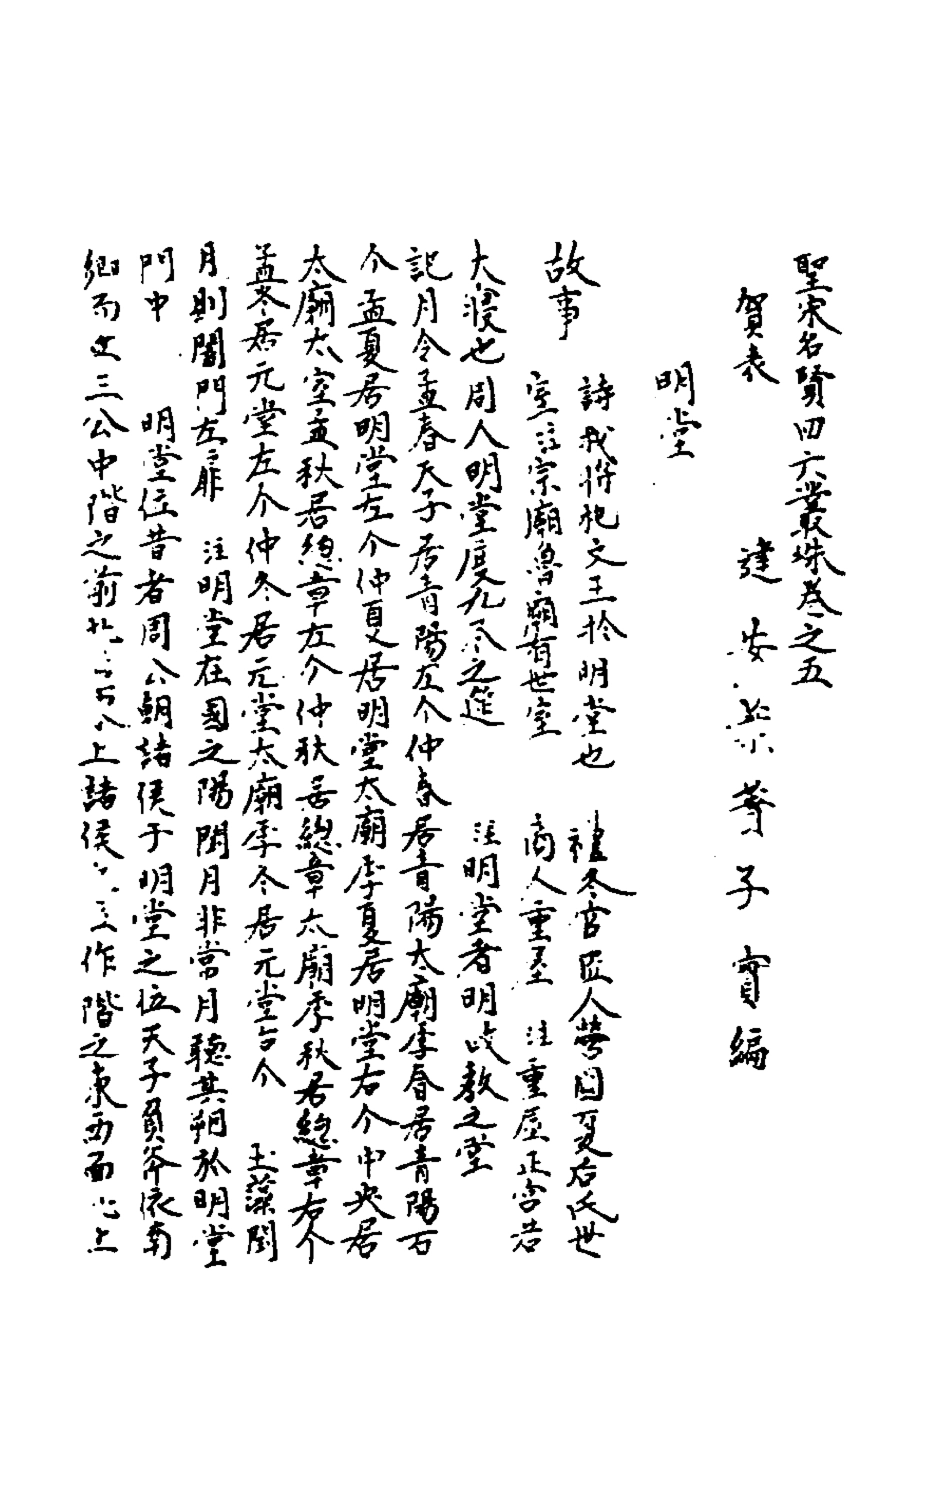 聖宋名賢四六叢珠卷之五
賀表　建安葉蕡子實編
明堂
故事　詩我將祀文王於明堂也　禮冬官匠人營國夏后氏世
室注宗廟魯廟有世室　商人重屋　注重屋正宮若
大寢也周人明堂度九尺之筵　注明堂者明政教之堂
記月令孟春天子居青陽左个仲春居青陽太廟季春居青陽右
个孟夏居明堂左个仲夏居明堂太廟季夏居明堂右个中央居
太廟太室孟秋居總章左个仲秋居總章太廟季秋居總章右个
孟冬居元堂左个仲冬居元堂太廟季冬居元堂右个　玉藻閏
月則闔門左扉　注明堂在國之陽閏月非常月聽其朔於明堂
門中　明堂位昔者周公朝諸侯于明堂之位天子負斧依南
鄉而立三公中階之前北上諸侯作階之東西面北上